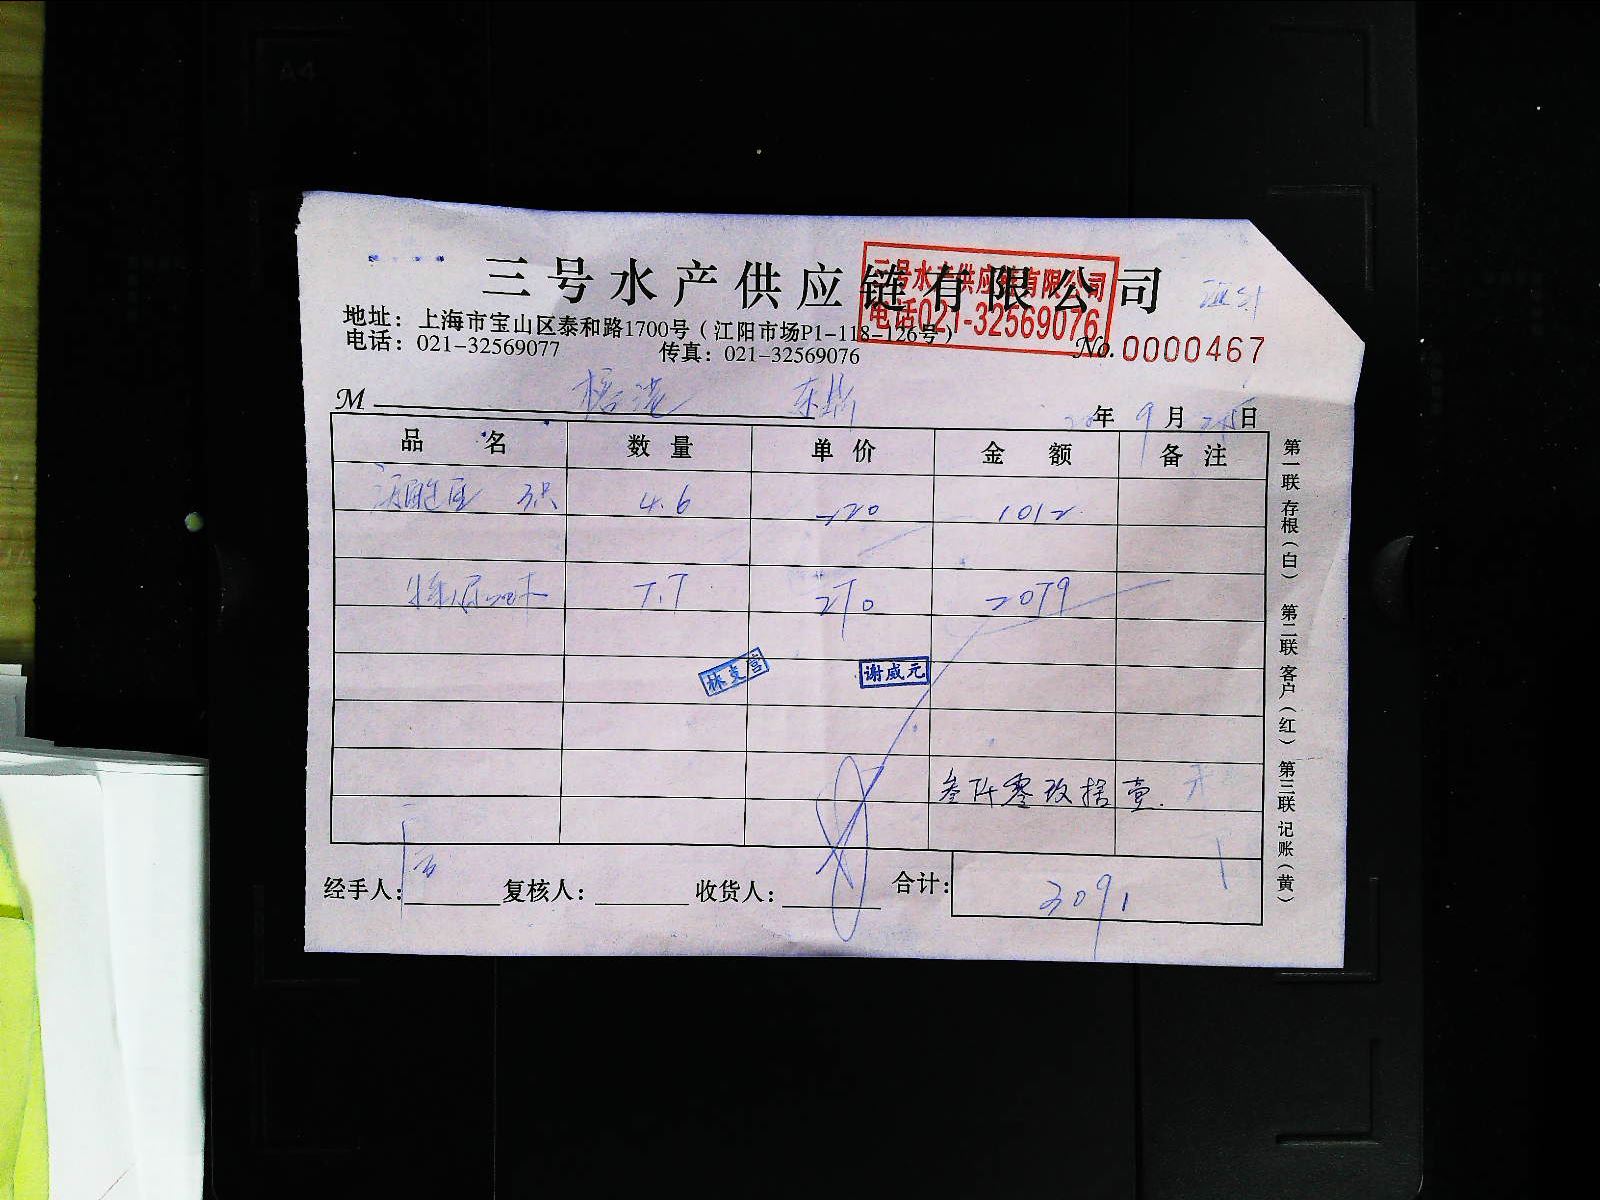 三号水产供应链有限公司
三号水产供应链有限公司
电话021-32569076
地址：上海市宝山区泰和路1700号（江阳市场P1-118-126号）
电话：021-32569077 传真：021-32569076
No.0000467
M 东
年 9 月 日
品 名 数 量 单 价 金 额 备 注
4.6 220 1012
7.7 270 2079
林支营 谢威元
叁仟零玖拾壹
经手人： 复核人： 收货人： 合计：3091
第一联 存根（白） 第二联 客户（红） 第三联 记账（黄）
A4